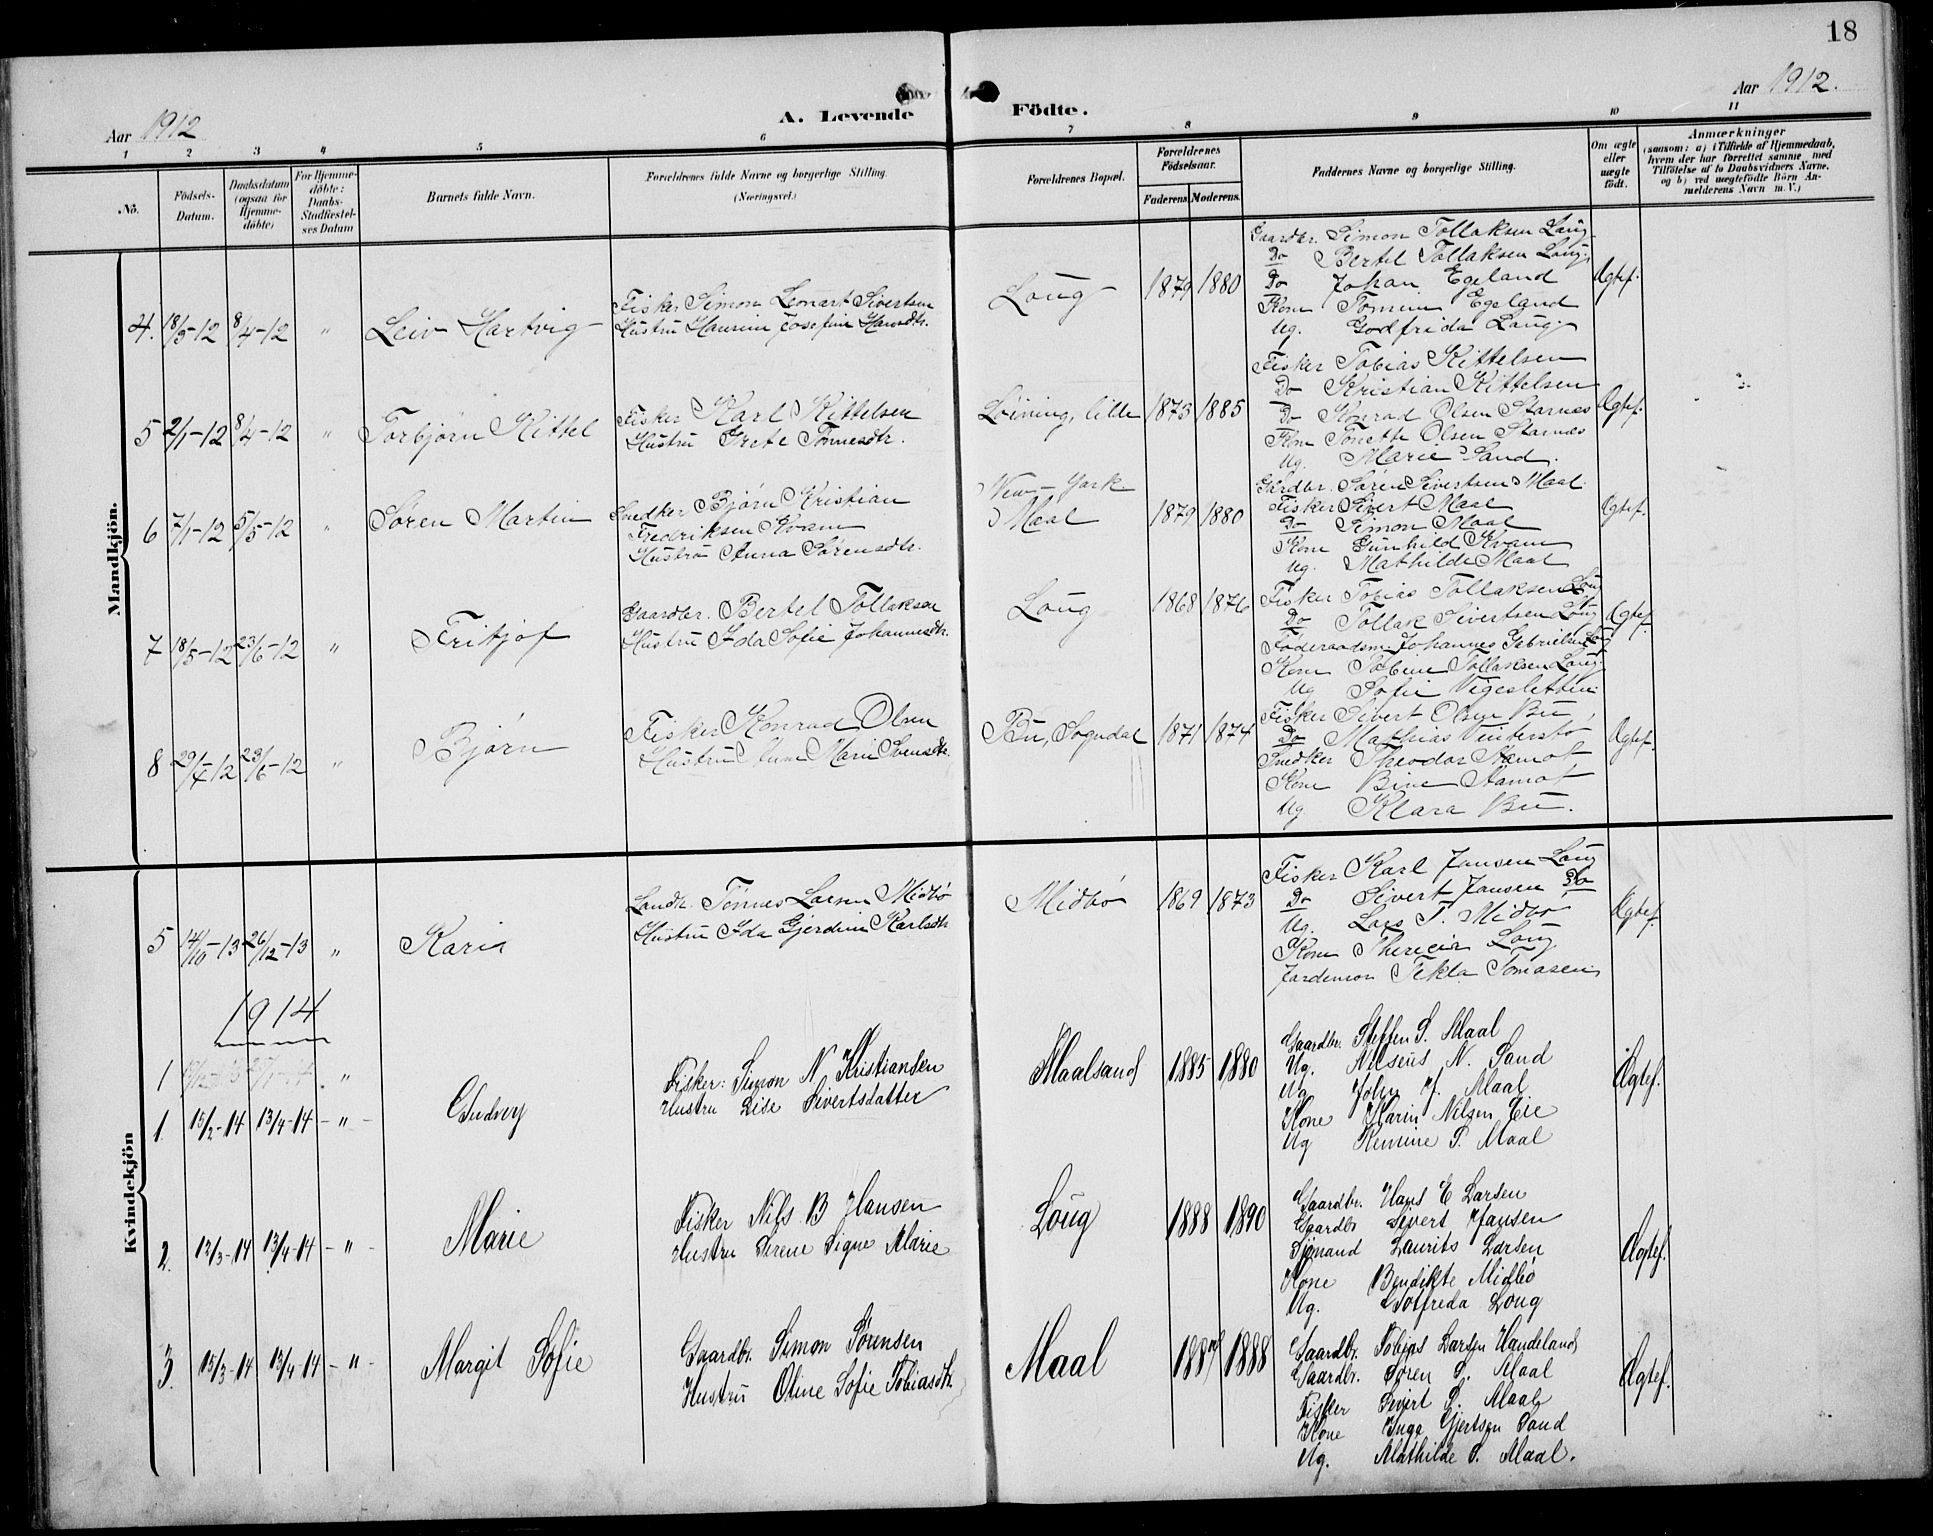 18
Aar 1912
A. Levende Födte.
Aar 1912.
1 2 3 4 5 6 7 8 9 10 11
No.
Födsels-Datum.
Daabsdatum (ogsaa for Hjemme-döbte)
For Hjemme-döbte: Daabs-Stadfæstel-ses Datum
Barnets fulde Navn.
Forældrenes fulde Navne og borgerlige Stilling.
(Næringsvei.)
Forældrenes Bopæl.
Forældrenes Födselsaar.
Faderens. Moderens.
Faddernes Navne og borgerlige Stilling.
Om ægte eller uægte födt.
Anmærkninger
(saasom: a) i Tilfælde af Hjemmedaab,
hvem der har forrettet samme, med
Tilföielse af to Daabsvidners Navne,
og b) ved uægtefödte Börn An-
melderens Navn m. V.)
Mandkjön.
4. 18/3-12 8/4-12 " Leiv Hartvig
Fisker Simon Leonart Sivertsen
Hustru Haurine Josefine Hansdtr.
Loug 1879 1880
Gaardbr. Simon Tollaksen Loug
Do Bertel Tollaksen Loug
Do Johan Egeland
Kone Tomine Egeland
Ug. Godfrida Loug
Ægtef.
5 2/1-12 8/4-12 " Torbjørn Kittel
Fisker Karl Kittelsen
Hustru Grete Tønnesdtr.
Løining, lille 1873 1885
Fisker Tobias Kittelsen
Do Kristian Kittelsen
Do Konrad Olsen Starnes
Kone Tonette Olsen Starnes
Ug. Marie Sand.
Ægtef.
6 7/1-12 5/5-12 " Søren Martin
Snedker Bjørn Kristian
Fredriksen Kvam
Hustru Anna Sørensdtr.
New-York
Maal 1879 1880
Gårdbr. Søren Sivertsen Maal
Fisker Sivert Maal
Do Simon Maal
Kone Gunhild Kvam
Ug. Mathilde Maal
Ægtef.
7 18/5-12 23/6-12 " Fritjof
Gaardbr. Bertel Tollaksen
Hustru Ida Sofie Johannesdtr.
Loug 1868 1876
Fisker Tobias Tollaksen Loug
Do Tollak Sivertsen Loug
Føderaadsm. Johannes Gabrielsen Loug
Kone Tobine Tollaksen Loug
Ug Sofie Vigesletten
Ægtef.
8 29/4-12 23/6-12 " Bjørn
Fisker Konrad Olsen
Hustru Anne Marie Svensdtr.
Bu, Sogndal 1871 1874
Fisker Sivert Olsen Bu
Do Mathias Vinterstø
Snedker Theodor Stamot
Kone Bine Stamot
Ug Klara Bu.
Ægtef.
Kvindekjön
5 14/10-13 26/12-13 " Karin
Landh. Tönnes Larsen Midbö
Hustru Ida Gjerdine Karlsdtr
Midbö 1869 1873
Fisker Karl Jansen Loug
Do Sivert Jansen Do
Ug. Lars T. Midbö
Kone Thericia Loug
Jordemor Tekla Tomasen
Ægtef.
1914
1 "
1. 15/2-14 13/4-14 - " - Gudvey
Fisker: Simon N Kristiansen
Hustru Lise Sivertsdatter
Maalsand 1885 1880
Gaardbr. Steffen S. Maal
Ug. Nilseus N. Sand
Ug John J. Maal
Kone Karin Nilsen Eie
Ug Remine S. Maal
Ægtef.
2. 12/3-14 13/4-14 - " - Marie
Fisker Nils B Hansen
Hustru Serene Signe Marie
Loug 1888 1890
Gaardbr. Hans E Larsen
Gaardbr Sivert Jansen
Sjömand Laurits Larsen
Kone Bendikte Midbö
Ug. Gotfreda Loug
Ægtef.
3. 15/3-14 13/4-14 - " - Margit Sofie
Gaardbr. Simon Sørensen
Hustru Oline Sofie Tobiasdtr.
Maal 1887 1888
Gaardbr. Tobias Larsen Haudeland
Gaardbr. Søren S. Maal
Fisker Sivert S. Maal
Kone Inga Gjertsen Sand
Ug. Mathilde S. Maal.
Ægtef.